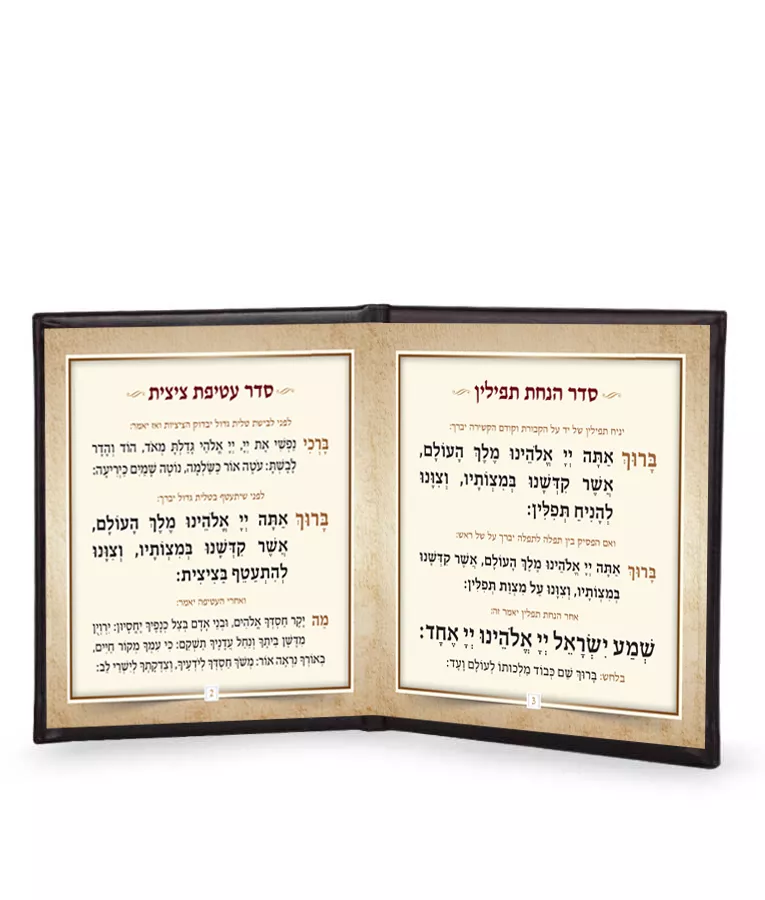 סדר עטיפת ציצית
לפני לבישת טלית גדול יבדוק הציציות ואז יאמר:
בָּרְכִי נַפְשִׁי אֶת יְיָ, יְיָ אֱלֹהַי גָּדַלְתָּ מְאֹד, הוֹד וְהָדָר
לָבָשְׁתָּ: עֹטֶה אוֹר כַּשַּׂלְמָה, נוֹטֶה שָׁמַיִם כַּיְרִיעָה:
לפני שיתעטף בטלית גדול יברך:
בָּרוּךְ אַתָּה יְיָ אֱלֹהֵינוּ מֶלֶךְ הָעוֹלָם,
אֲשֶׁר קִדְּשָׁנוּ בְּמִצְוֹתָיו, וְצִוָּנוּ
לְהִתְעַטֵּף בַּצִּיצִית:
ואחרי העטיפה יאמר:
מַה יָּקָר חַסְדְּךָ אֱלֹהִים, וּבְנֵי אָדָם בְּצֵל כְּנָפֶיךָ יֶחֱסָיוּן: יִרְוְיֻן
מִדֶּשֶׁן בֵּיתֶךָ וְנַחַל עֲדָנֶיךָ תַשְׁקֵם: כִּי עִמְּךָ מְקוֹר חַיִּים,
בְּאוֹרְךָ נִרְאֶה אוֹר: מְשֹׁךְ חַסְדְּךָ לְיֹדְעֶיךָ, וְצִדְקָתְךָ לְיִשְׁרֵי לֵב:
2
סדר הנחת תפילין
יניח תפילין של יד על הקבורת וקודם הקשירה יברך:
בָּרוּךְ אַתָּה יְיָ אֱלֹהֵינוּ מֶלֶךְ הָעוֹלָם,
אֲשֶׁר קִדְּשָׁנוּ בְּמִצְוֹתָיו, וְצִוָּנוּ
לְהָנִיחַ תְּפִלִּין:
ואם הפסיק בין תפלה לתפלה יברך על של ראש:
בָּרוּךְ אַתָּה יְיָ אֱלֹהֵינוּ מֶלֶךְ הָעוֹלָם, אֲשֶׁר קִדְּשָׁנוּ
בְּמִצְוֹתָיו, וְצִוָּנוּ עַל מִצְוַת תְּפִלִּין:
אחר הנחת תפלין יאמר זה:
שְׁמַע יִשְׂרָאֵל יְיָ אֱלֹהֵינוּ יְיָ אֶחָד:
בלחש: בָּרוּךְ שֵׁם כְּבוֹד מַלְכוּתוֹ לְעוֹלָם וָעֶד:
3